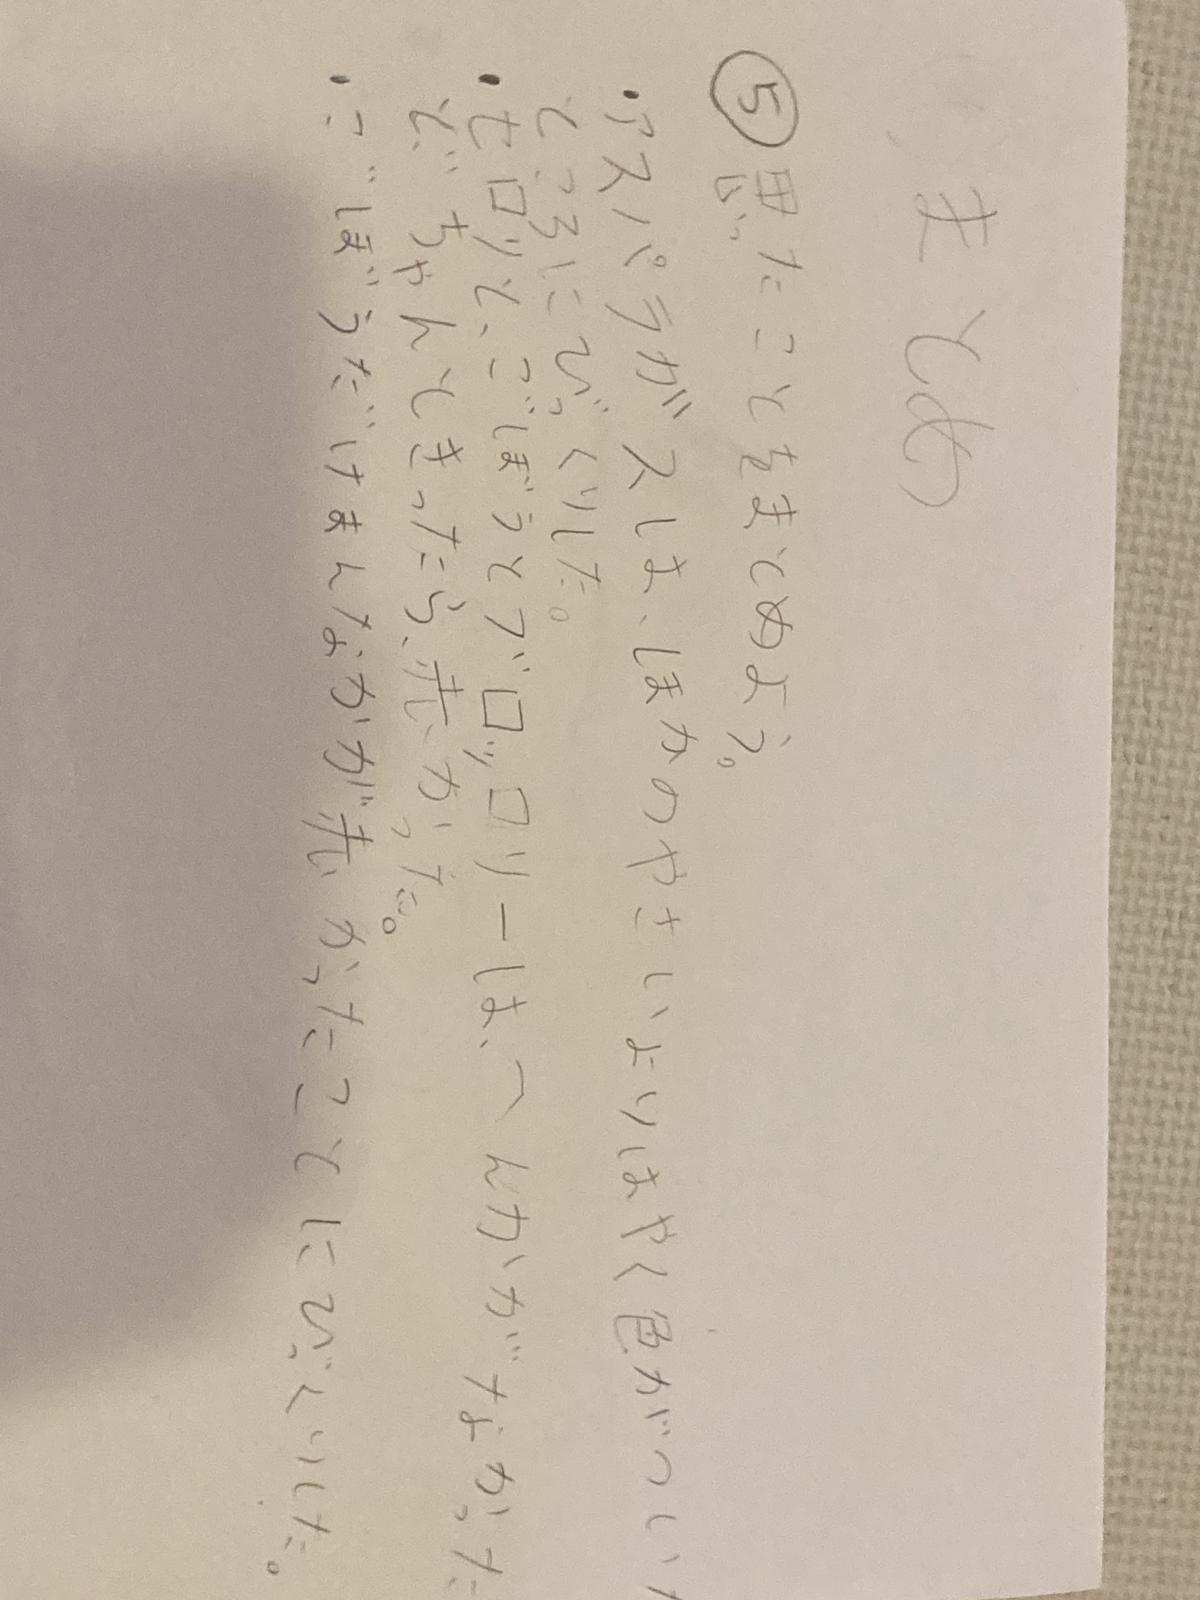 まとめ
⑤思ったことをまとめよう。
・アスパラガスは、ほかのやさいよりはやく色がついた
ところにびっくりした。
・セロリと、ごぼうとブロッコリーは、へんかがなかった
ど、ちゃんときったら、赤かった。
・ごぼうだけまんなかが赤かったことにびっくりした。